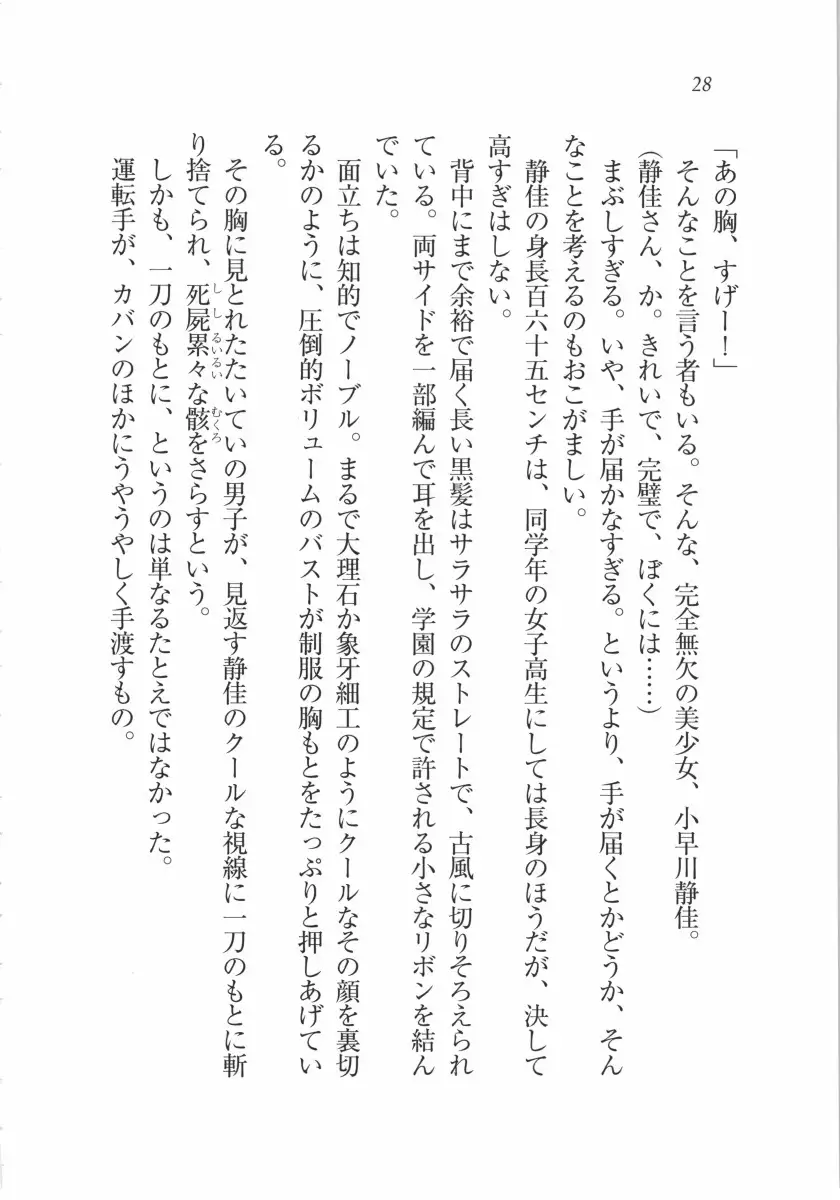 28
「あの胸、すげー！」
そんなことを言う者もいる。そんな、完全無欠の美少女、小早川静佳。
（静佳さん、か。きれいで、完璧で、ぼくには……）
まぶしすぎる。いや、手が届かなすぎる。というより、手が届くとかどうか、そん
なことを考えるのもおこがましい。
静佳の身長百六十五センチは、同学年の女子高生にしては長身のほうだが、決して
高すぎはしない。
背中にまで余裕で届く長い黒髪はサラサラのストレートで、古風に切りそろえられ
ている。両サイドを一部編んで耳を出し、学園の規定で許される小さなリボンを結ん
でいた。
面立ちは知的でノーブル。まるで大理石か象牙細工のようにクールなその顔を裏切
るかのように、圧倒的ボリュームのバストが制服の胸もとをたっぷりと押しあげてい
る。
その胸に見とれたたいていの男子が、見返す静佳のクールな視線に一刀のもとに斬
り捨てられ、死屍累々な骸をさらすという。
ししるいるい　むくろ
しかも、一刀のもとに、というのは単なるたとえではなかった。
運転手が、カバンのほかにうやうやしく手渡すもの。